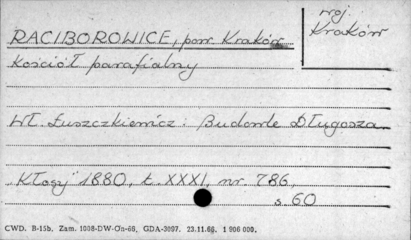 woj
Kraków
RACIBOROWICE, pow. Kraków
kościół parafialny
Wł. Łuszczkiewicz: Budowle Długosza
"Kłosy" 1880, t. XXXI, nr. 786,
s. 60
CWD. B-15b, Zam. 1008-DW-On-66, GDA-3097. 23.11.66. 1 906 000.